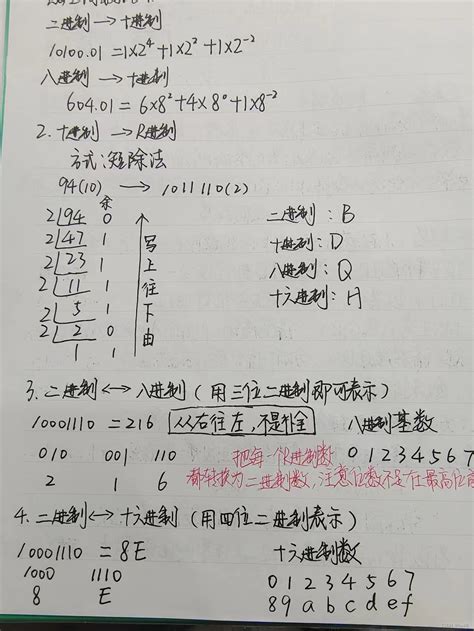 二进制 → 十进制
10100.01 = 1×2⁴ + 1×2² + 1×2⁻²
八进制 → 十进制
604.01 = 6×8² + 4×8⁰ + 1×8⁻²
2. 十进制 → R进制
方式:短除法
94(10) → 1011110(2)
余
2 94 0
2 47 1
2 23 1
2 11 1
2 5 1
2 2 0
1 1
写上往下由
二进制:B
十进制:D
八进制:Q
十六进制:H
3. 二进制 ↔ 八进制 (用三位二进制即可表示)
10001110 = 216 从右往左,不足补全 八进制基数
010 001 110 把每一个R进制数 0 1 2 3 4 5 6 7
2 1 6 都转换为二进制数,注意位数不足在最高位
4. 二进制 ↔ 十六进制 (用四位二进制表示)
10001110 = 8E 十六进制数
1000 1110 0 1 2 3 4 5 6 7
8 E 8 9 a b c d e f